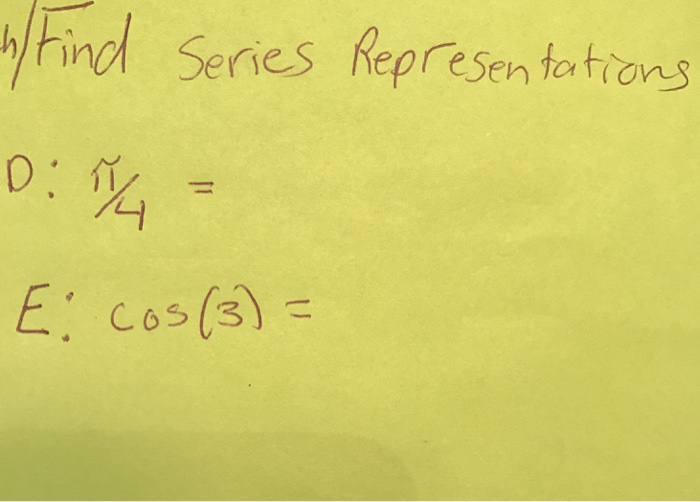 h/Find Series Representations
D: π/4 =
E: cos(3) =